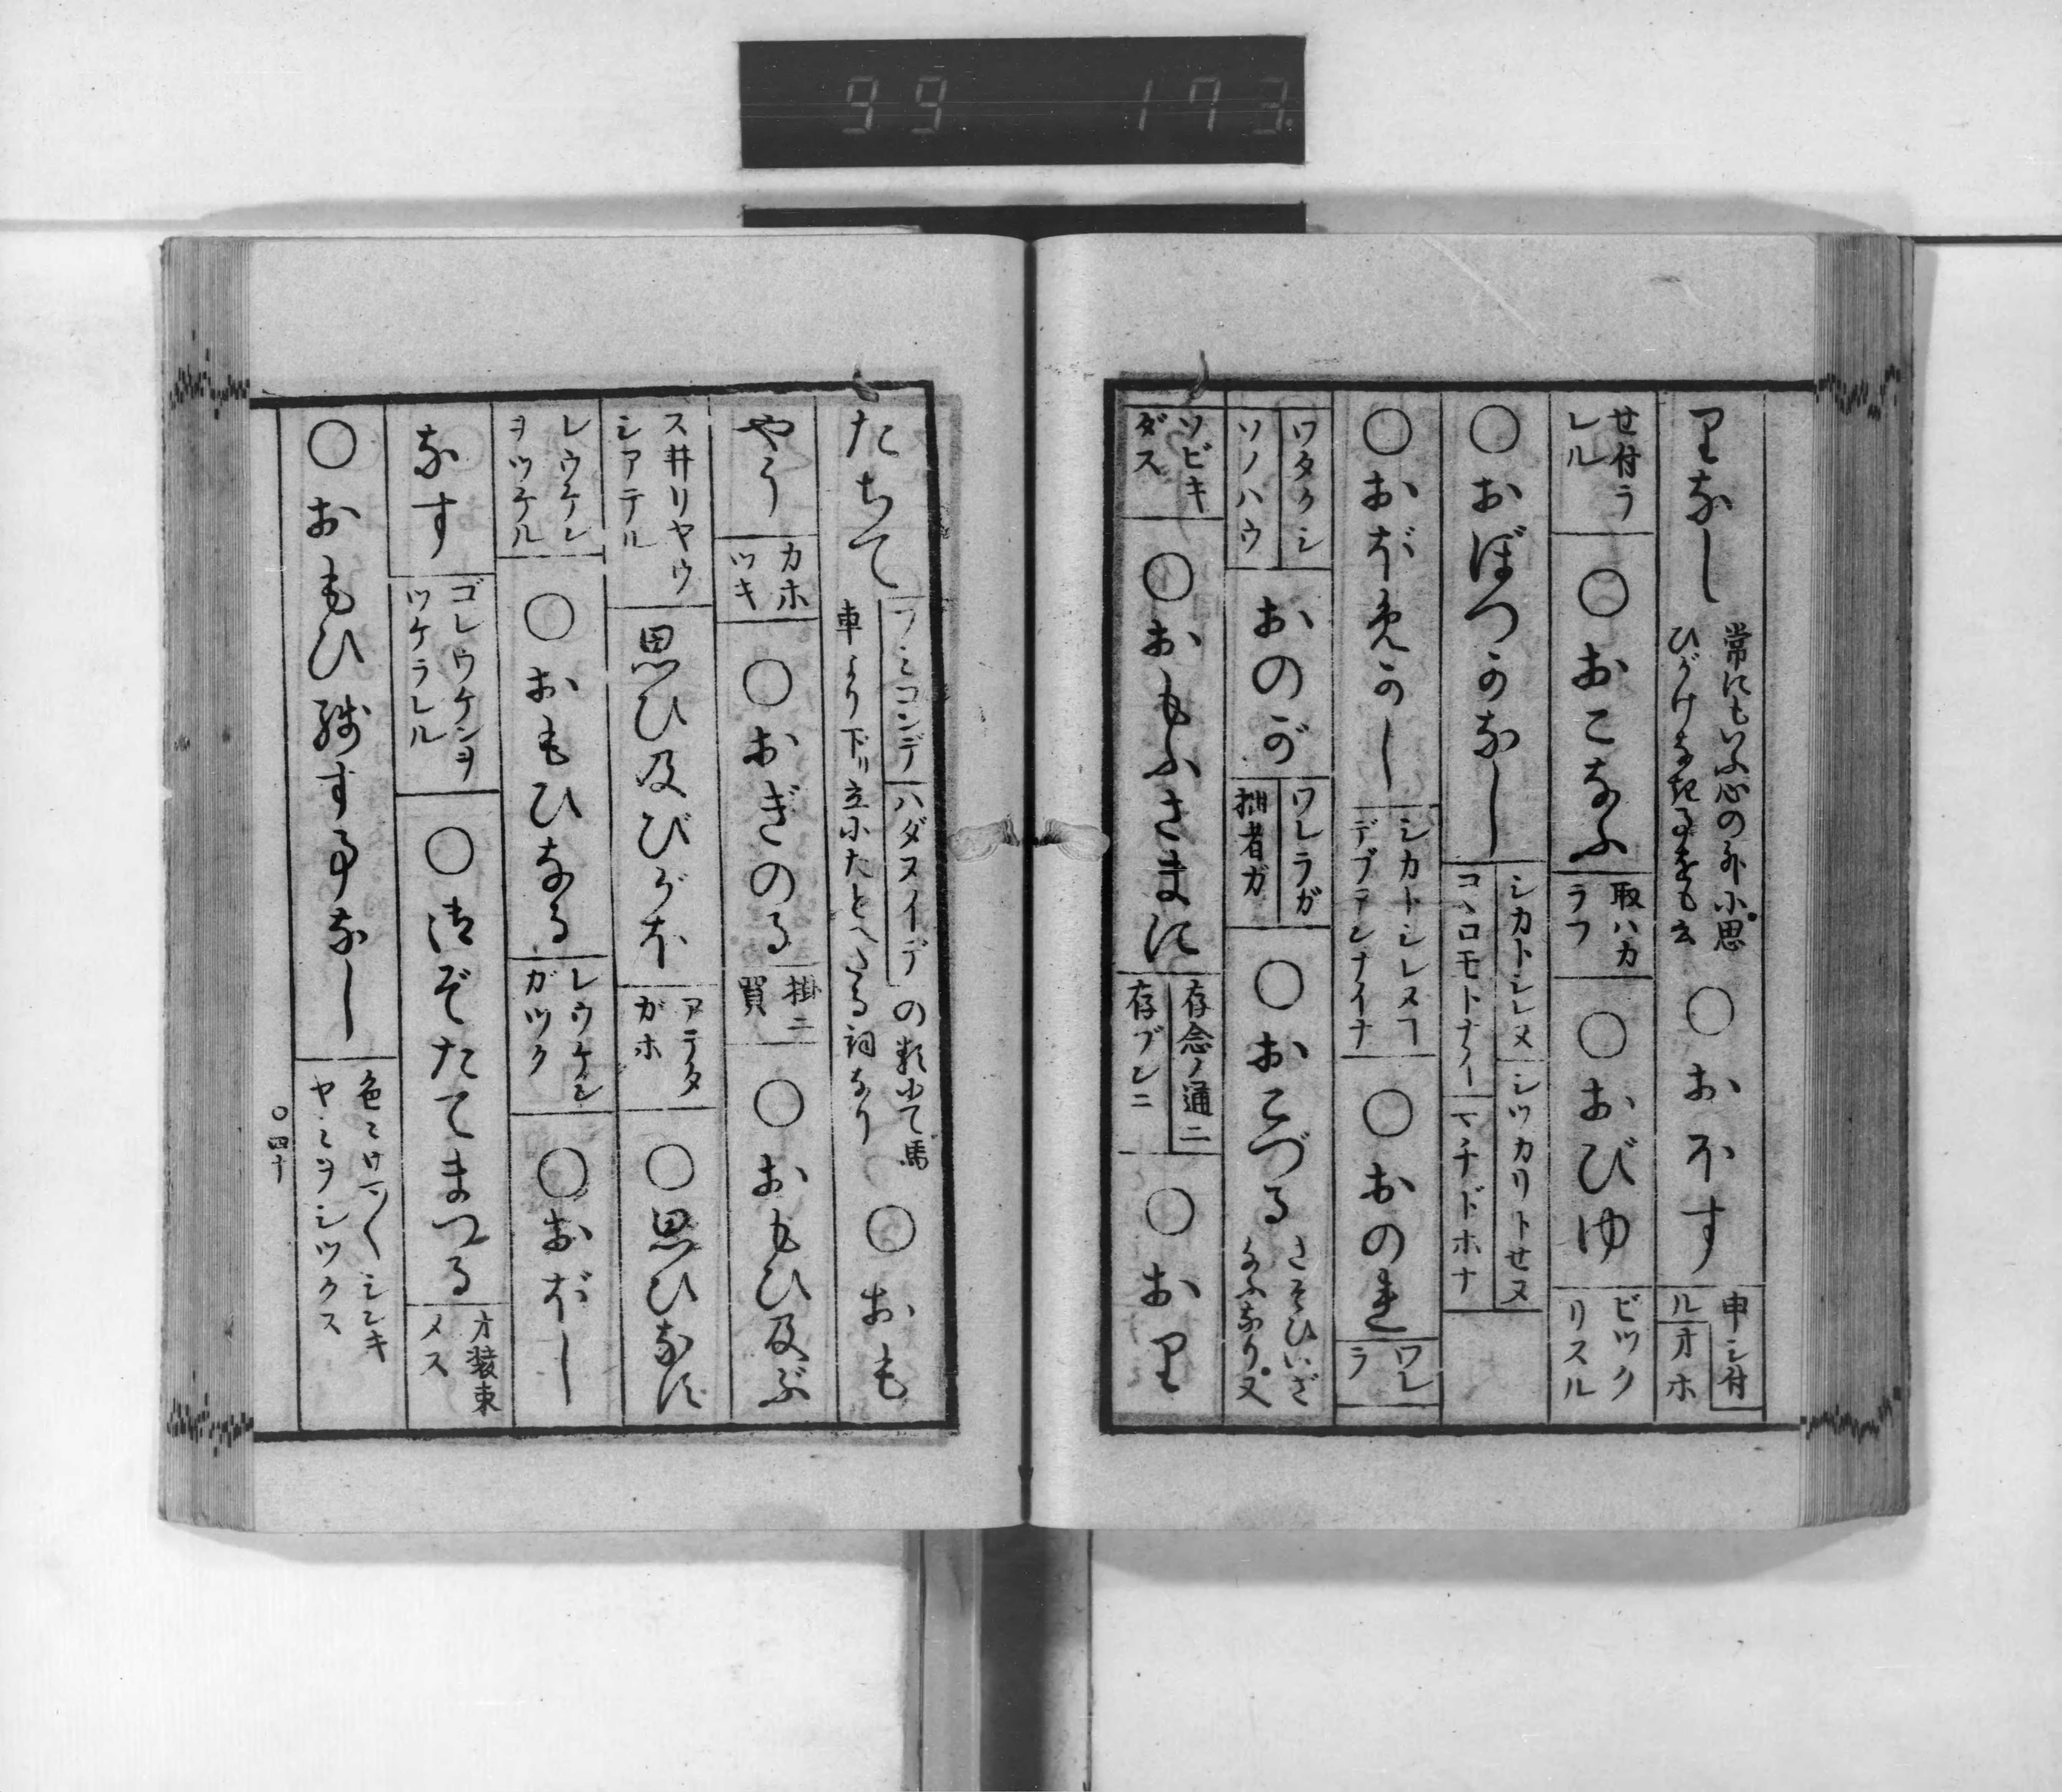 99 173
りなし 常にもいふ心の外に思ひがけなき事をも云 ○おほす 申シ付ル オホ
せ付ラレル ○おこなふ 取ハカラフ ○おびゆ ビツクリスル
○おぼつかなし シカトシレヌ シツカリトせヌ コヽロモトナイ マチドホナ
○おぼめかし シカトシレヌ デブアンナイナ ○おのれ ワレラ
ワタクシ ソノハウ おのが ワレラガ 拙者ガ ○おこづる さそひいざなふなり又
ソビキダス ○おもふさまに 存念ノ通ニ 存ブンニ ○おり
たちて フミコンデ ハダヌイデ の類にて馬車より下り立にたとへたる詞なり ○おも
やう カホツキ ○おぎのる 掛ニ買 ○おもひ及ぶ
ス井リヤウシアテル 思ひ及びがほ アテタガホ ○思ひなす
レウケンヲツケル ○おもひなる レウケンガツク ○おぼし
なす ゴレウケンヲツケラレル ○御ぞたてまつる オ装束メス
○おもひ残す事なし
○四十